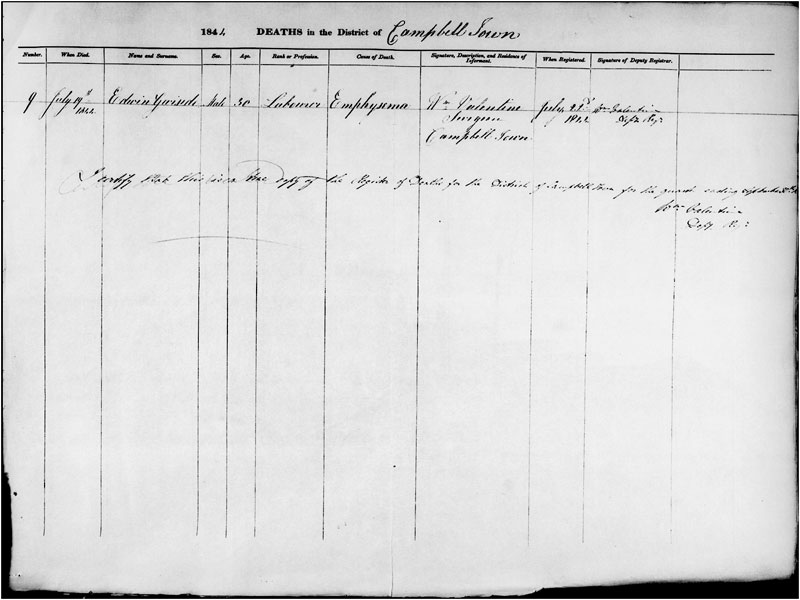 1844. DEATHS in the District of Campbell Town
Number. When Died. Name and Surname. Sex. Age. Rank or Profession. Cause of Death. Signature, Description, and Residence of Informant. When Registered. Signature of Deputy Registrar.
9 July 19th 1844 Edwin Male 30 Labourer Emphysema Wm Valentine Surgeon Campbell Town July 23rd 1844 Wm Valentine Depy Regr
I certify that this is a true copy of the Register of Deaths for the District of Campbell Town for the quarter ending
Wm Valentine
Depy Regr